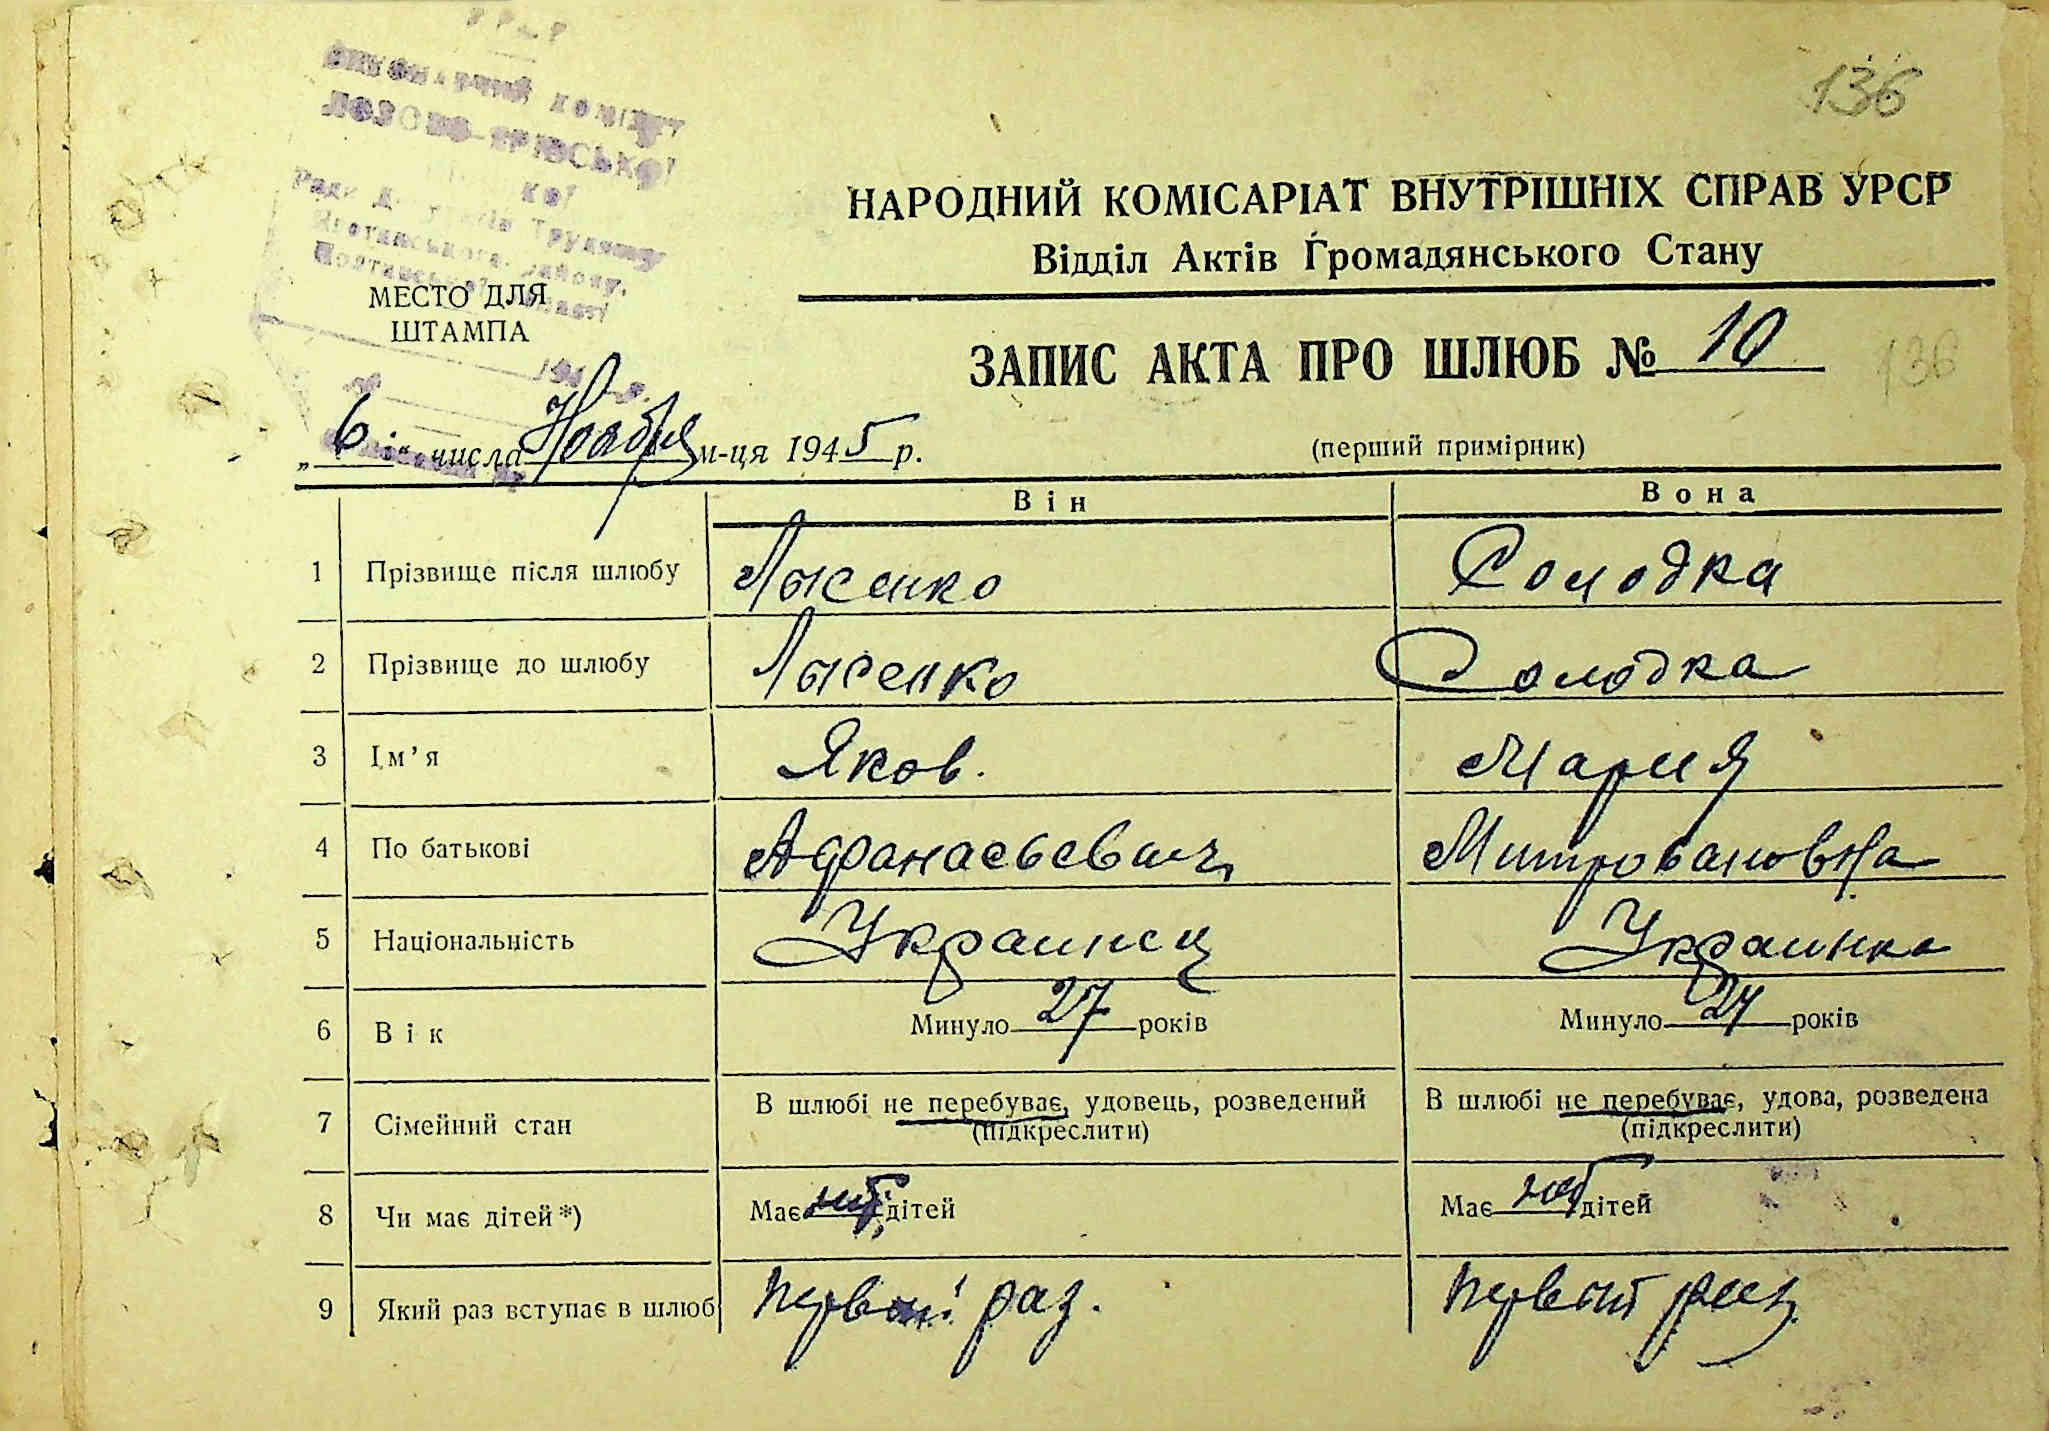 УРСР
ВИКОНАВЧИЙ КОМІТЕТ
Ради Трудящих
Яготинського району,
Полтавської області
136
НАРОДНИЙ КОМІСАРІАТ ВНУТРІШНІХ СПРАВ УРСР
Відділ Актів Громадянського Стану
МЕСТО ДЛЯ
ШТАМПА
ЗАПИС АКТА ПРО ШЛЮБ № 10
136
„6" числа Ноября м-ця 1945 р.
(перший примірник)
Він Вона
1 Прізвище після шлюбу Лысенко Солодка
2 Прізвище до шлюбу Лысенко Солодка
3 Ім'я Яков. Мария
4 По батькові Афанасьевич Митровановна
5 Національність Украинец Украинка
6 Вік Минуло 27 років Минуло 24 років
7 Сімейний стан В шлюбі не перебуває, удовець, розведений В шлюбі не перебуває, удова, розведена
(підкреслити) (підкреслити)
8 Чи має дітей*) Має нет дітей Має нет дітей
9 Який раз вступає в шлюб первый раз. первый раз